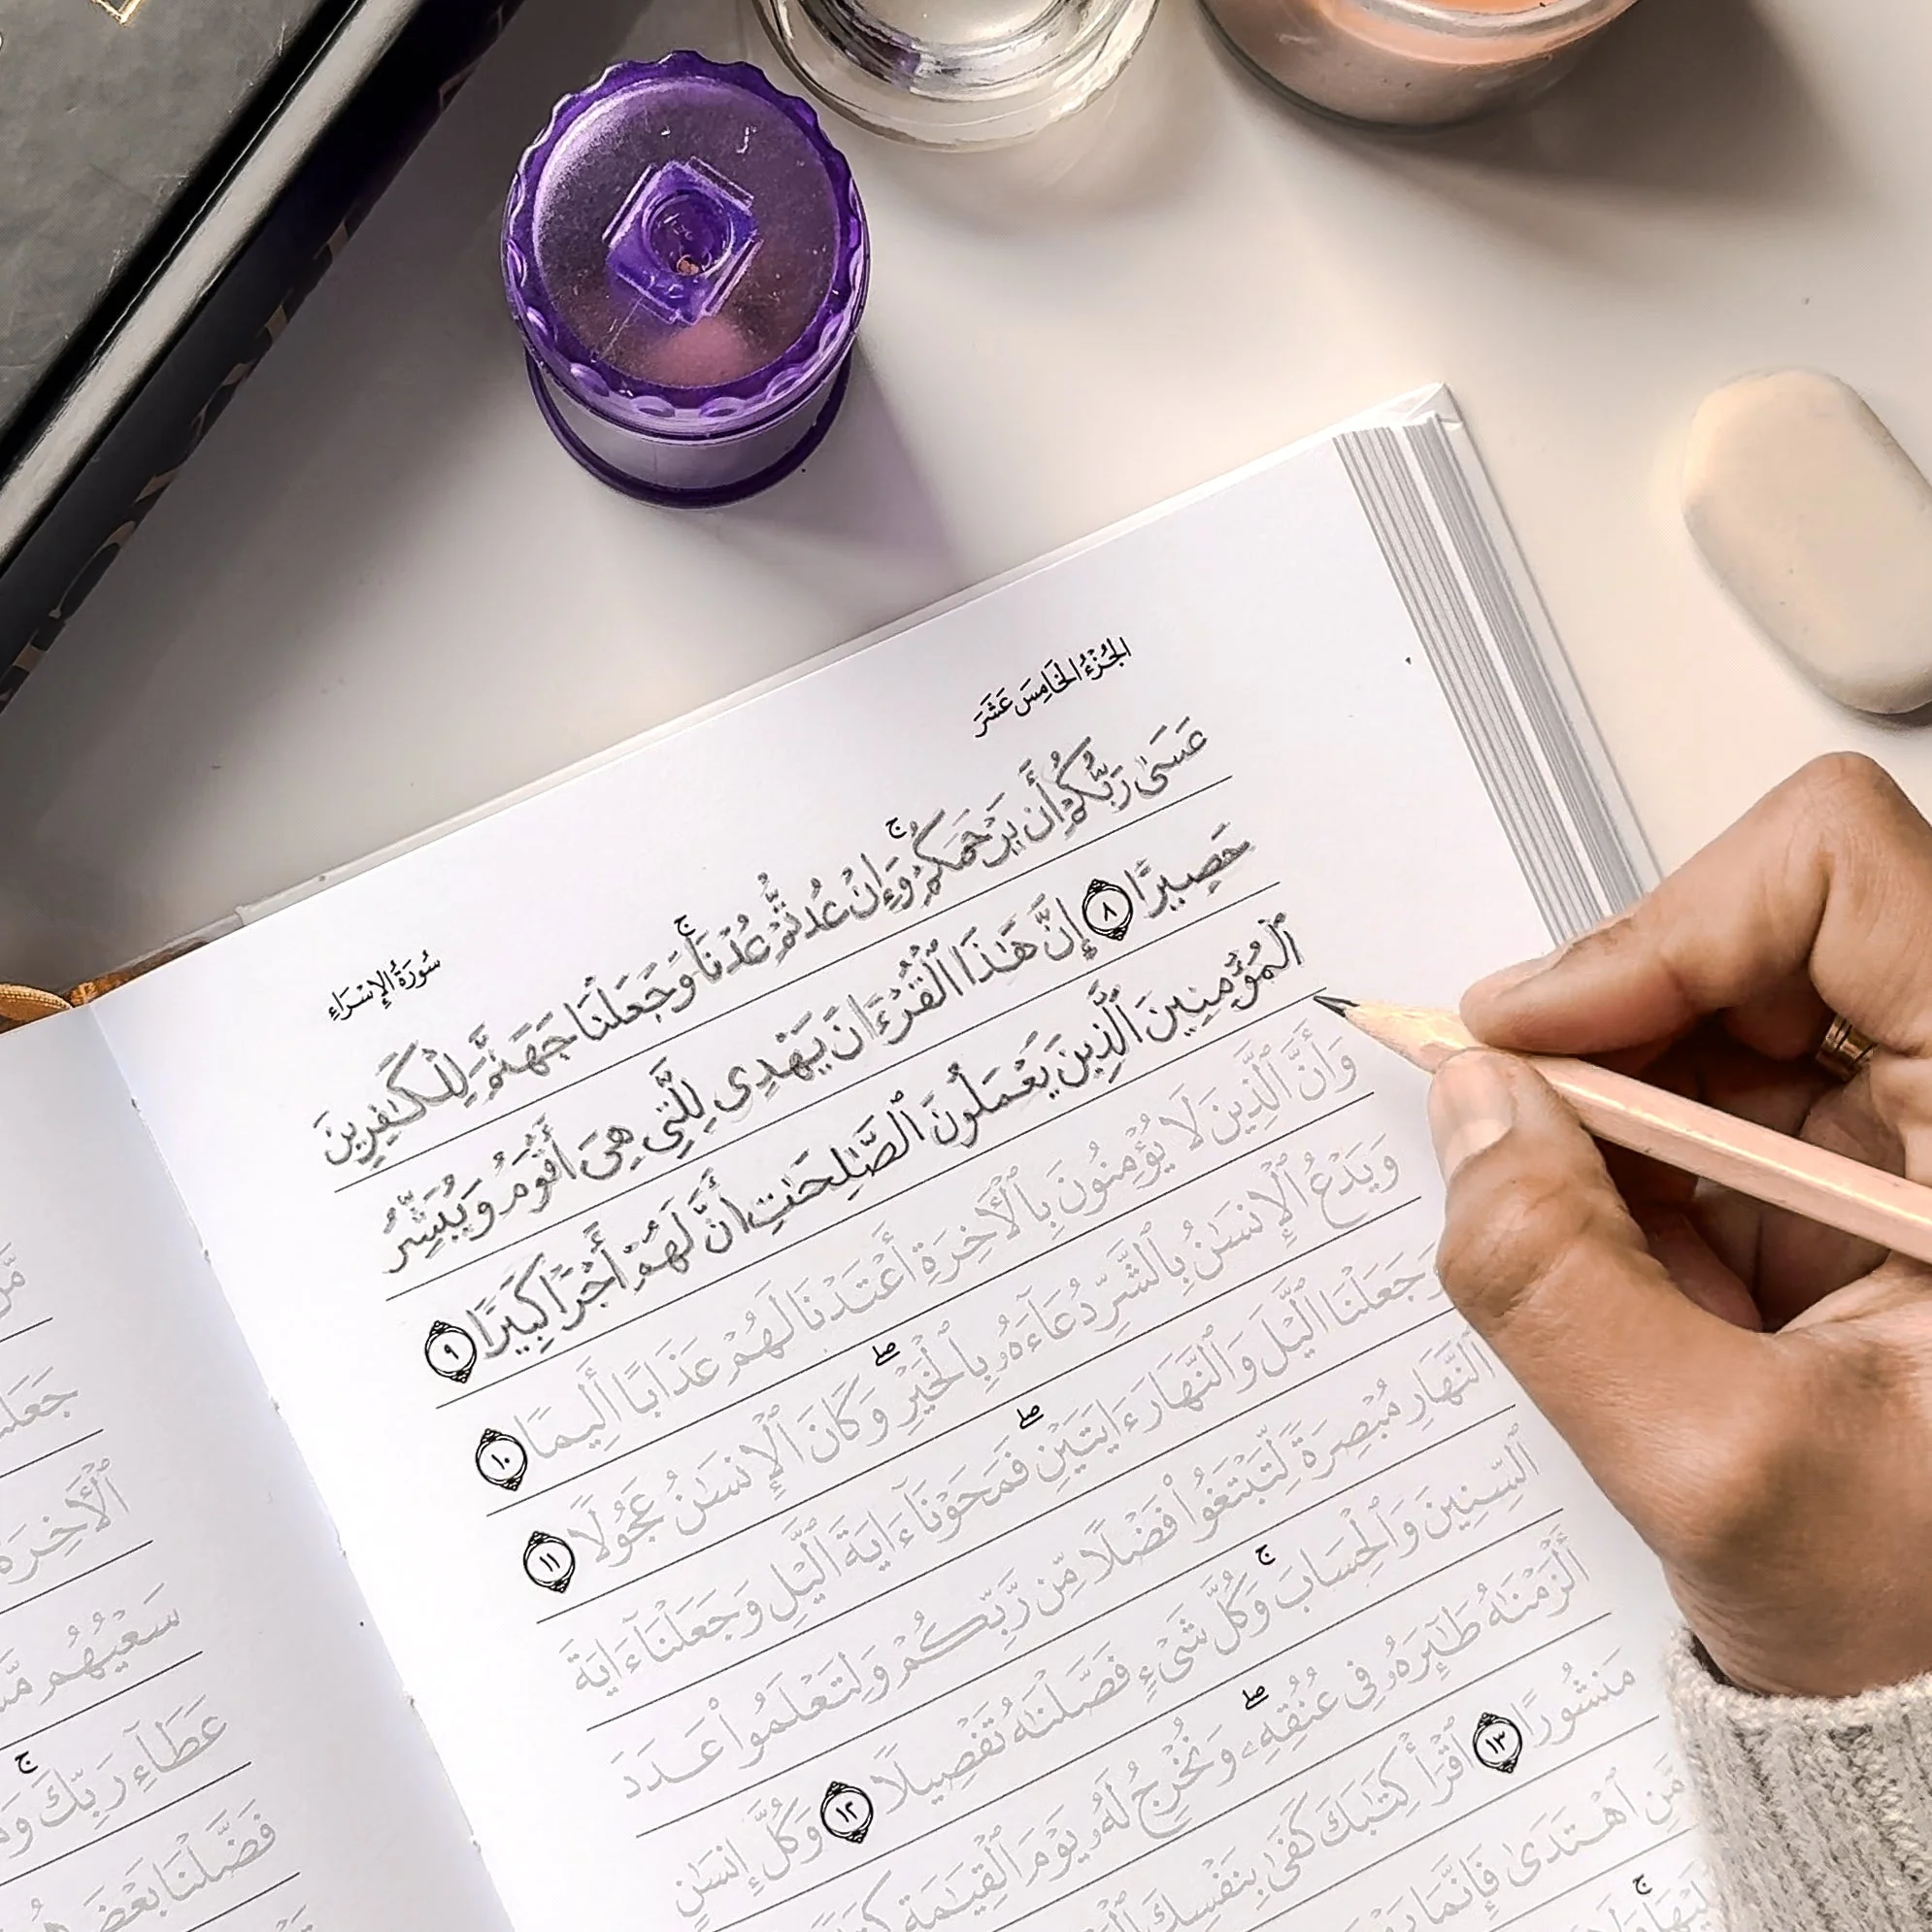 الجُزْءُ الخَامِسَ عَشَرَ
سُورَةُ الإِسْرَاءِ
عَسَىٰ رَبُّكُمْ أَن يَرْحَمَكُمْ ۚ وَإِنْ عُدتُّمْ عُدْنَا ۚ وَجَعَلْنَا جَهَنَّمَ لِلْكَـٰفِرِينَ
حَصِيرًا ٨ إِنَّ هَـٰذَا ٱلْقُرْءَانَ يَهْدِى لِلَّتِى هِىَ أَقْوَمُ وَيُبَشِّرُ
ٱلْمُؤْمِنِينَ ٱلَّذِينَ يَعْمَلُونَ ٱلصَّـٰلِحَـٰتِ أَنَّ لَهُمْ أَجْرًا كَبِيرًا ٩
وَأَنَّ ٱلَّذِينَ لَا يُؤْمِنُونَ بِٱلْـَٔاخِرَةِ أَعْتَدْنَا لَهُمْ عَذَابًا أَلِيمًا ١٠
وَيَدْعُ ٱلْإِنسَـٰنُ بِٱلشَّرِّ دُعَآءَهُۥ بِٱلْخَيْرِ ۖ وَكَانَ ٱلْإِنسَـٰنُ عَجُولًا ١١
وَجَعَلْنَا ٱلَّيْلَ وَٱلنَّهَارَ ءَايَتَيْنِ ۖ فَمَحَوْنَآ ءَايَةَ ٱلَّيْلِ وَجَعَلْنَآ ءَايَةَ
ٱلنَّهَارِ مُبْصِرَةً لِّتَبْتَغُوا۟ فَضْلًا مِّن رَّبِّكُمْ وَلِتَعْلَمُوا۟ عَدَدَ
ٱلسِّنِينَ وَٱلْحِسَابَ ۚ وَكُلَّ شَىْءٍ فَصَّلْنَـٰهُ تَفْصِيلًا ١٢ وَكُلَّ إِنسَـٰنٍ
أَلْزَمْنَـٰهُ طَـٰٓئِرَهُۥ فِى عُنُقِهِۦ ۖ وَنُخْرِجُ لَهُۥ يَوْمَ ٱلْقِيَـٰمَةِ
مَنشُورًا ١٣ ٱقْرَأْ كِتَـٰبَكَ كَفَىٰ بِنَفْسِكَ
مَّنِ ٱهْتَدَىٰ فَإِنَّمَا
جَعَلْنَا
ٱلْـَٔاخِرَةَ
سَعْيُهُم
عَطَآءِ رَبِّكَ ۚ
فَضَّلْنَا بَعْضَ